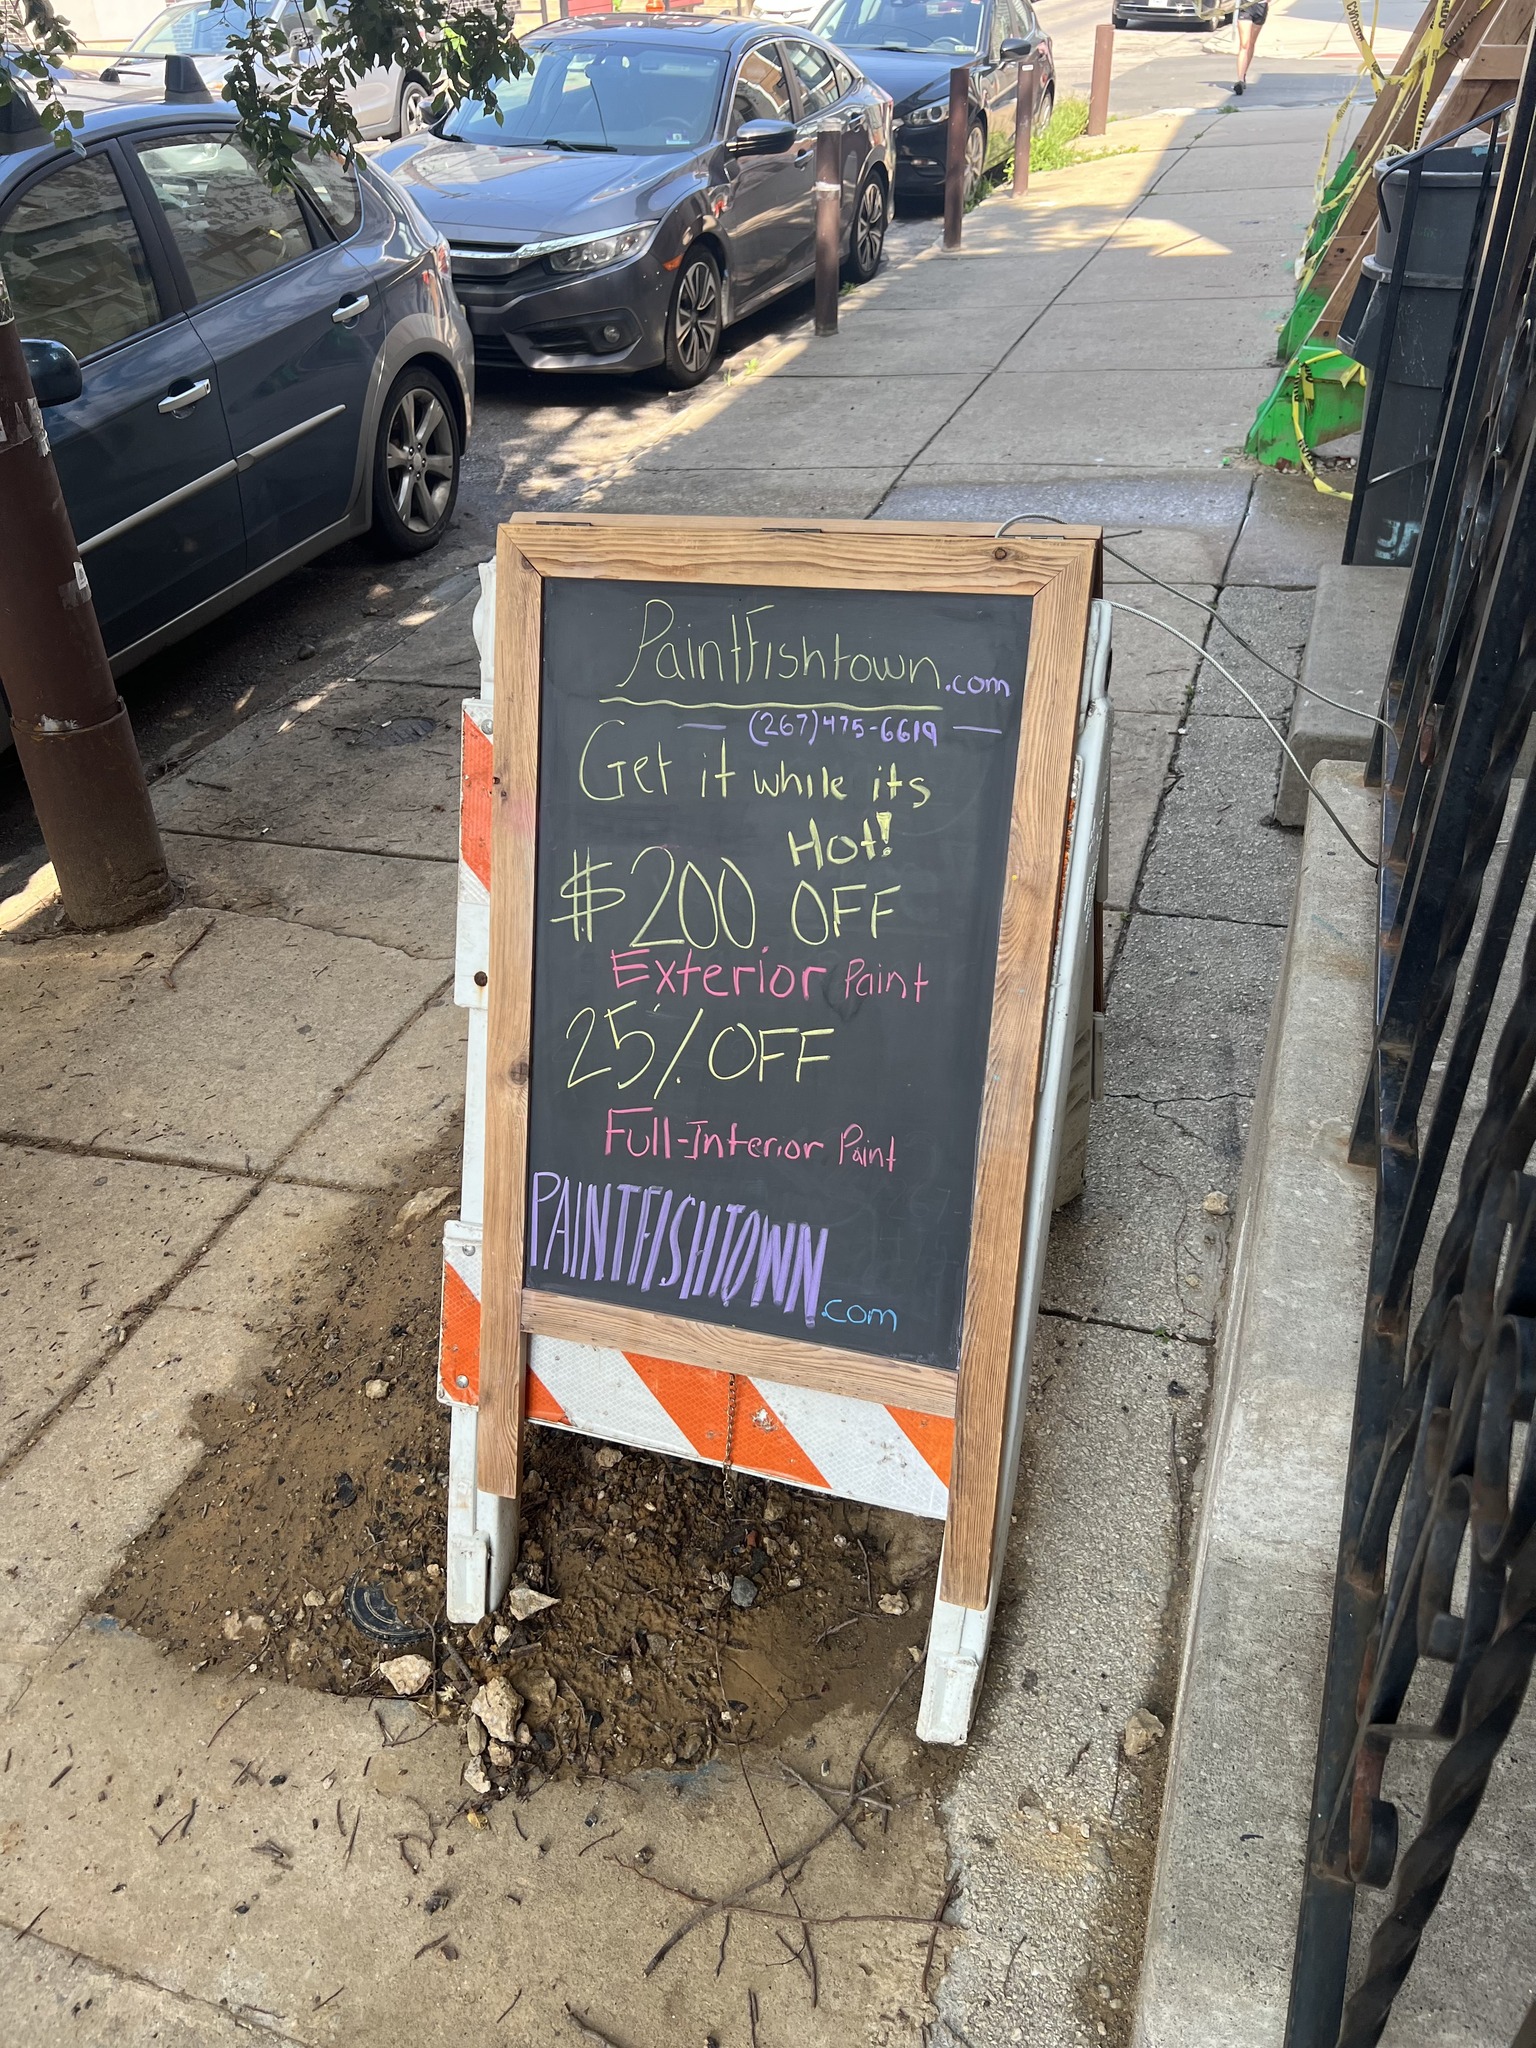 PaintFishtown.com
(267)475-6619
Get it while its
Hot!
$200 OFF
Exterior Paint
25% OFF
Full-Interior Paint
PAINTFISHTOWN.com